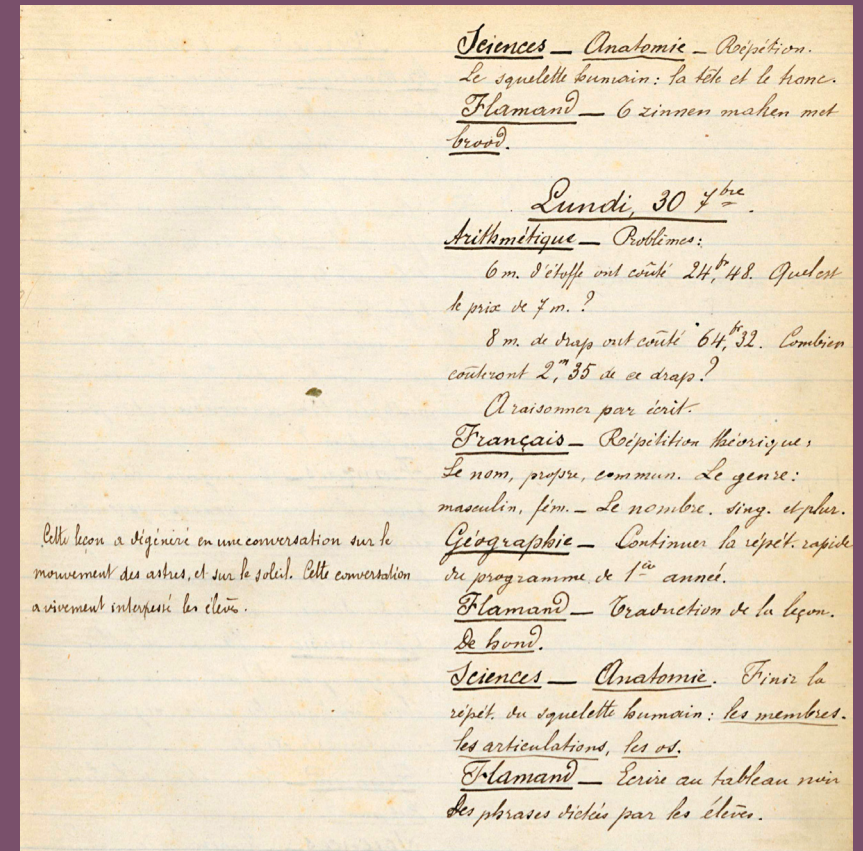 Sciences — Anatomie — Répétion.
Le squelette humain : la tête et le tronc.
Flamand — 6 zinnen maken met
brood.
Lundi, 30 7bre.
Arithmétique — Problèmes :
6 m. d'étoffe ont coûté 24,fr48. Quel est
le prix de 7 m. ?
8 m. de drap ont coûté 64,fr32. Combien
coûteront 2,m35 de ce drap ?
A raisonner par écrit.
Français — Répétition théorique :
Le nom, propre, commun. Le genre :
masculin, fém. — Le nombre. sing. et plur.
Géographie — Continuer la répét. rapide
du programme de 1ère année.
Flamand — Traduction de la leçon.
De hond.
Sciences — Anatomie. Finir la
répét. du squelette humain : les membres.
les articulations, les os.
Flamand — Ecrire au tableau noir
des phrases dictées par les élèves.
Cette leçon a dégénéré en une conversation sur le
mouvement des astres, et sur le soleil. Cette conversation
a vivement interessé les élèves.